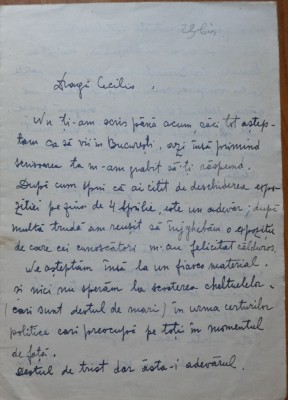 Dragă Cecilia,
Nu ți-am scris până acum, căci tot aștep-
tam ca să vii în București, azi însă primind
scrisoarea ta m-am grăbit să-ți răspund.
După cum spui că ai citit de deschiderea expo-
ziției pe ziua de 4 Aprilie, este un adevăr; după
multă trudă am reușit să înghebăm o expoziție
de care cei cunoscători m-au felicitat călduros.
Ne așteptăm însă la un fiasco material
și nici nu sperăm la scoaterea cheltuelelor
(cari sunt destul de mari) în urma certurilor
politice cari preocupă pe toți în momentul
de față.
Destul de trist dar ăsta-i adevărul.